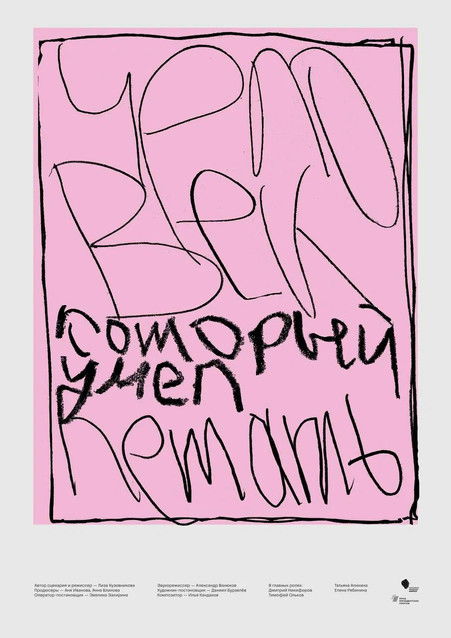 Чело
век
который
умел
летать
Автор сценария и режиссер — Лиза Кузовникова
Продюсеры — Аня Иванова, Анна Блинова
Оператор-постановщик — Эвелина
Звукорежиссер — Александр
Художник-постановщик — Даниил Буравлёв
Композитор — Илья
В главных ролях:
Дмитрий Никифоров
Тимофей Ольков
Татьяна Аникина
Елена Рябинина